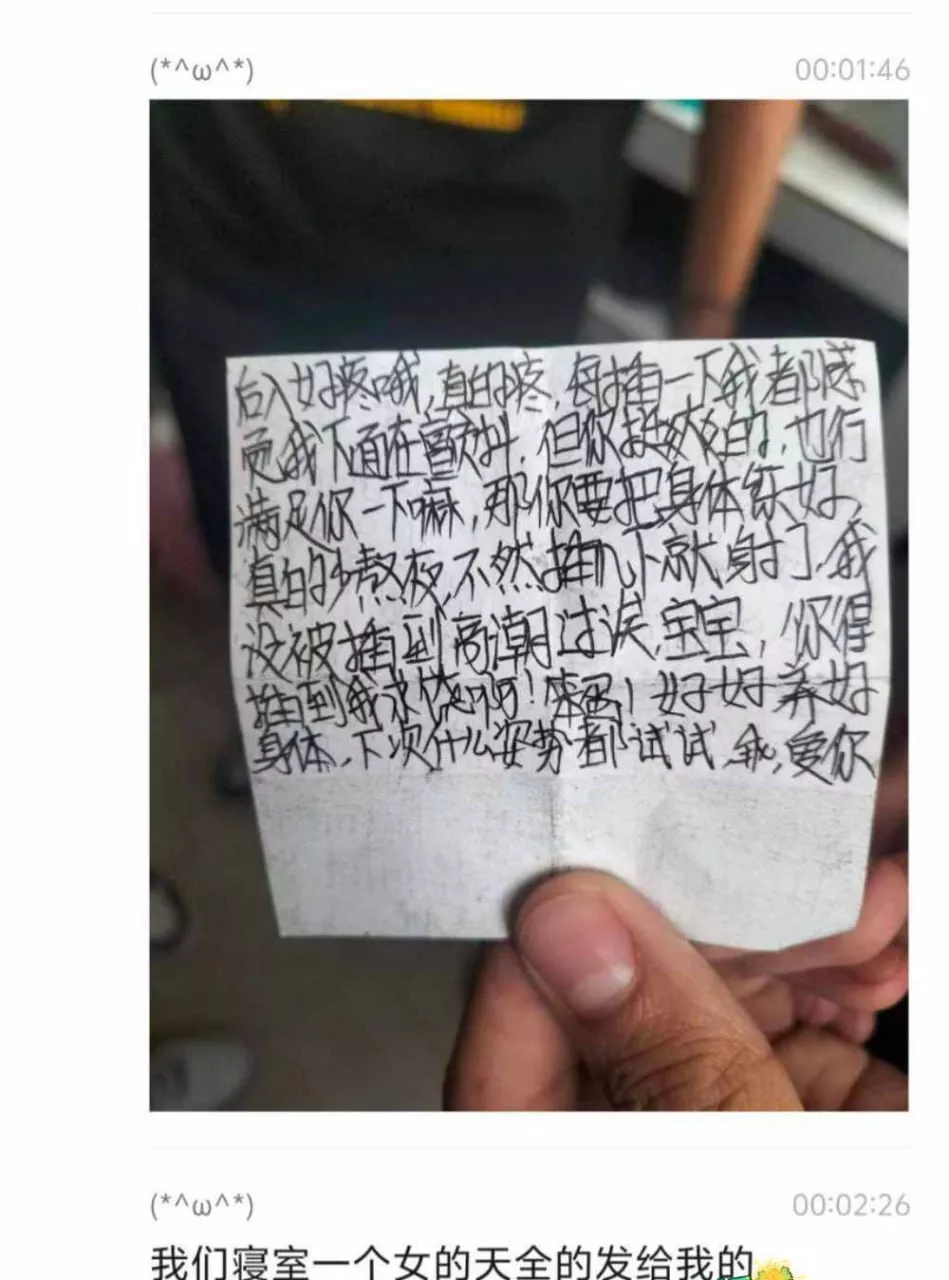 (*^ω^*) 00:01:46
后入好疼哦,真的疼,每插一下我都感
觉我下面在颤抖,但你挺爽的,也行
满足你一下嘛,那你要把身体练好,
真的少熬夜,不然插几下就射了,我
没被插到高潮过诶,宝宝,你得
插到我求饶啊!笨蛋!好好养好
身体,下次什么姿势都试试,我,爱你
(*^ω^*) 00:02:26
我们寝室一个女的天全的发给我的